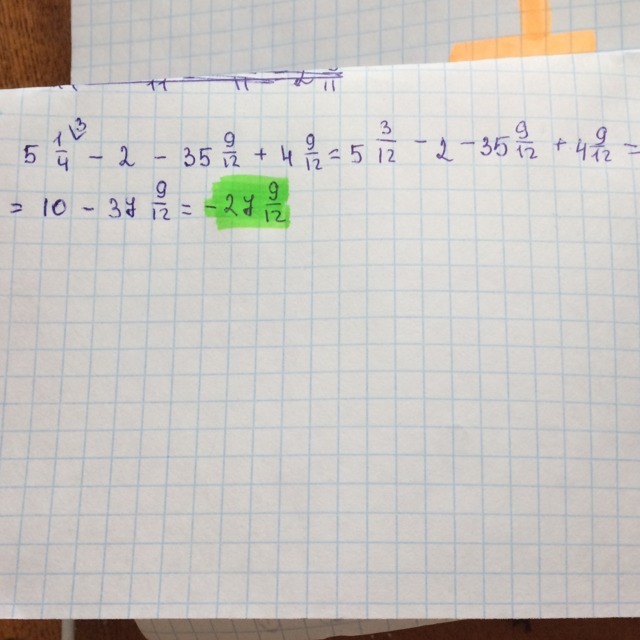 5 1/4 \3 - 2 - 35 9/12 + 4 9/12 = 5 3/12 - 2 - 35 9/12 + 4 9/12 =
= 10 - 37 9/12 = -27 9/12